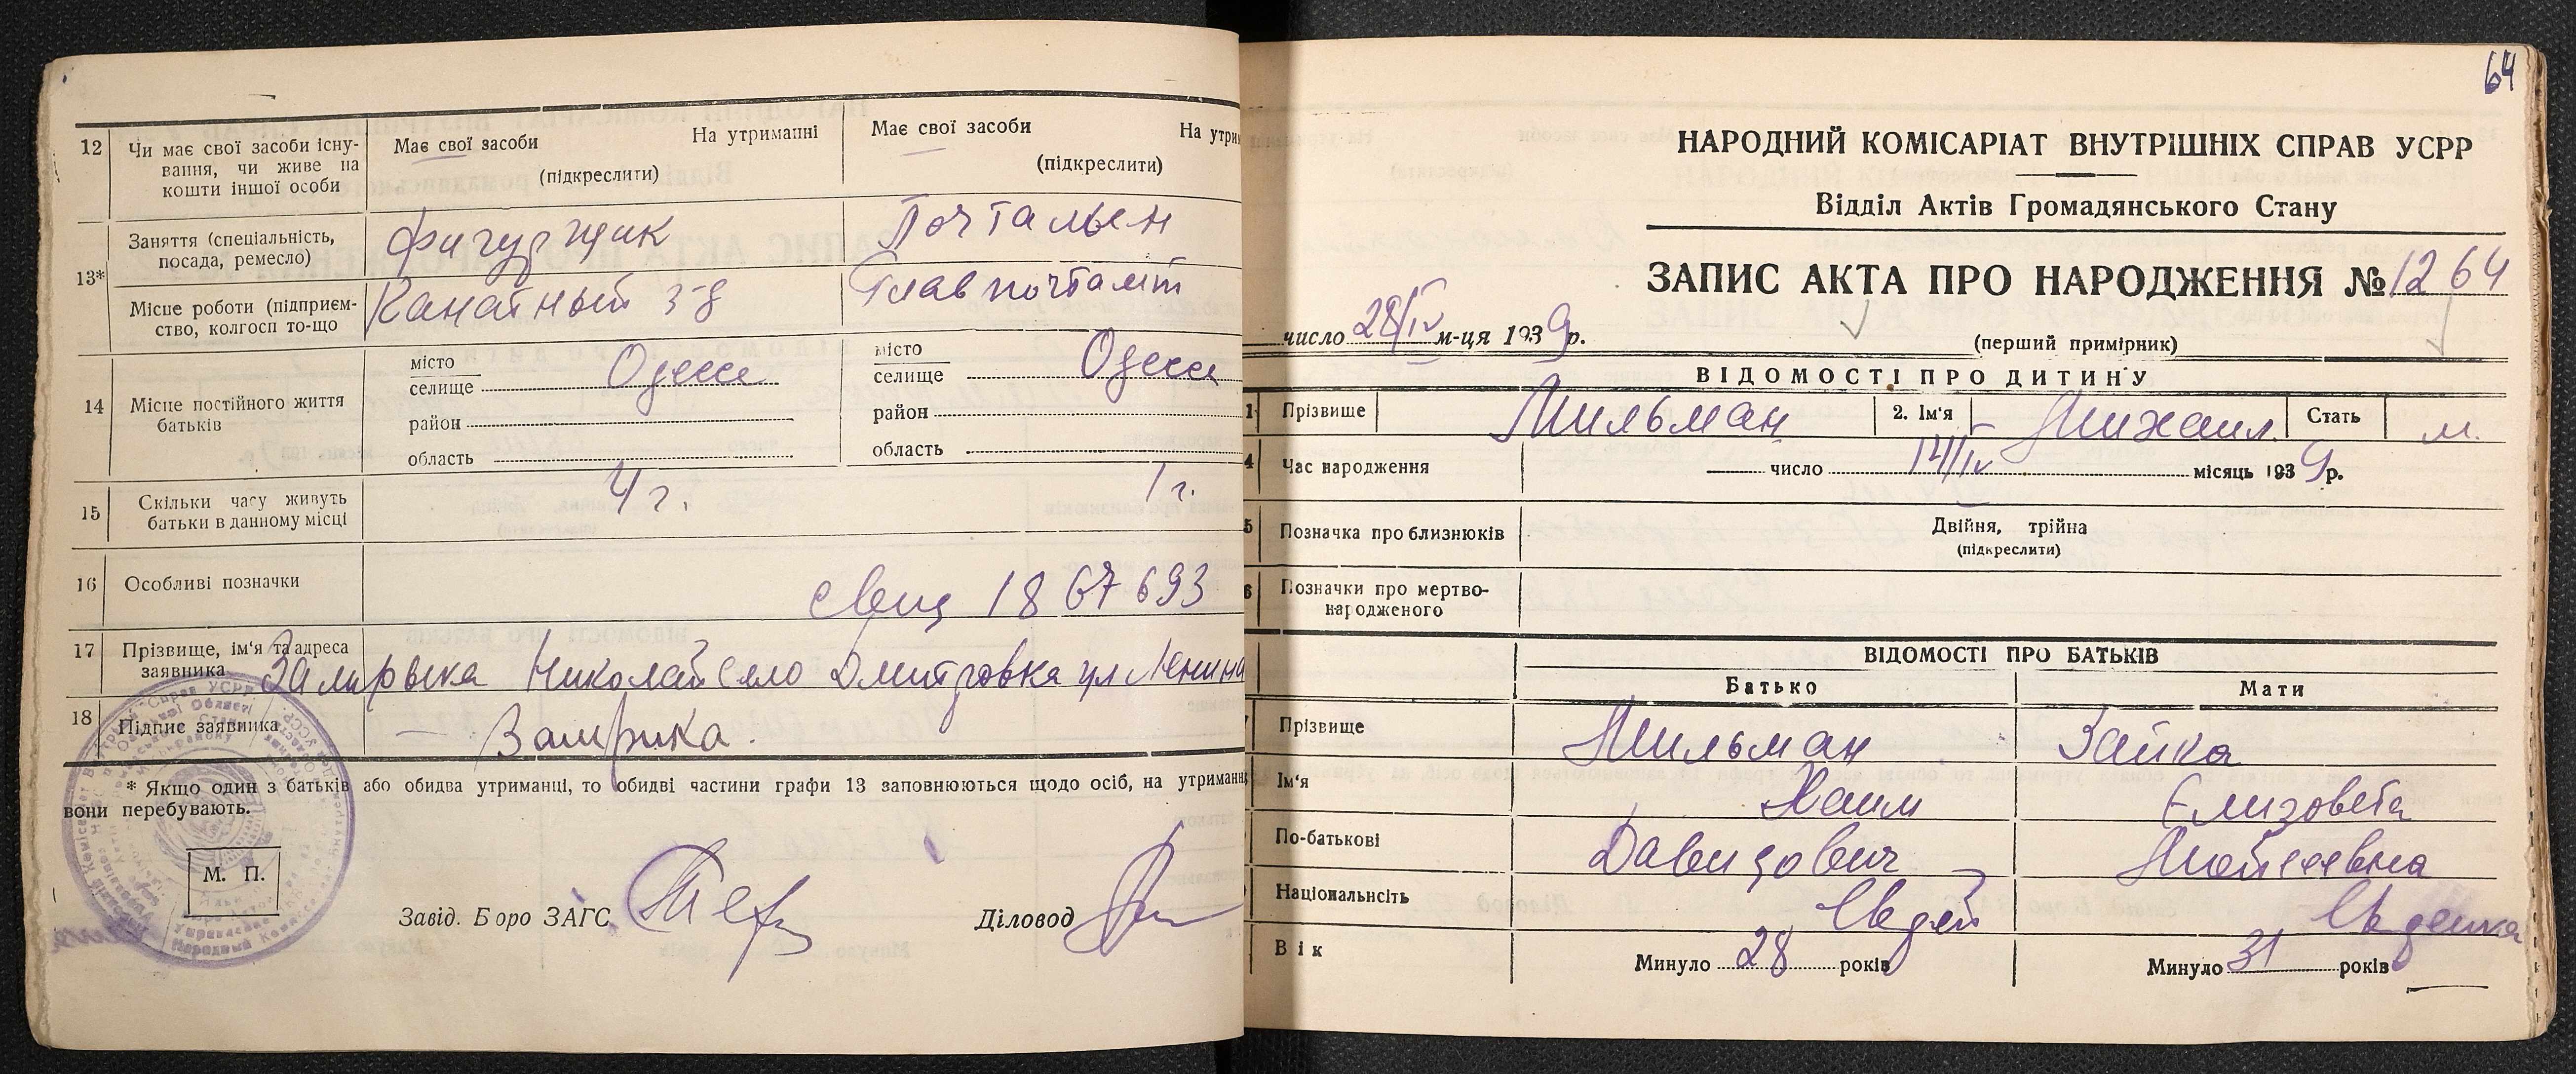 12
Чи має свої засоби існу-
вання, чи живе на
кошти іншої особи
Має свої засоби
На утриманні
(підкреслити)
Має свої засоби
На утрим
(підкреслити)
13*
Заняття (спеціальність,
посада, ремесло)
Почтальен
Місце роботи (підприєм-
ство, колгосп то-що
Канатный 58
Главпочтамт
14
Місце постійного життя
батьків
місто
селище
Одесса
район
область
місто
селище
Одесса
район
область
15
Скільки часу живуть
батьки в данному місці
4 г.
1 г.
16
Особливі позначки
1867693
17
Прізвище, ім'я та адреса
заявника
Николай село Дмитровка ул Ленина
18
Підпис заявника
* Якщо один з батьків або обидва утриманці, то обидві частини графи 13 заповнюються щодо осіб, на утриманні
вони перебувають.
М. П.
Завід. Боро ЗАГС
Діловод
64
НАРОДНИЙ КОМІСАРІАТ ВНУТРІШНІХ СПРАВ УСРР
Відділ Актів Громадянського Стану
ЗАПИС АКТА ПРО НАРОДЖЕННЯ № 1264
число 28/IV м-ця 1939 р.
(перший примірник)
ВІДОМОСТІ ПРО ДИТИНУ
1
Прізвище
Мильман
2. Ім'я
Михаил
Стать
м.
4
Час народження
число 14/IV місяць 1939 р.
5
Позначка про близнюків
Двійня, трійна
(підкреслити)
6
Позначки про мертво-
народженого
ВІДОМОСТІ ПРО БАТЬКІВ
Батько
Мати
Прізвище
Мильман
Зайка
Ім'я
Хаим
Елизовета
По-батькові
Давидович
Мойсеевна
Національність
Еврей
Еврейка
Вік
Минуло 28 років
Минуло 31 років